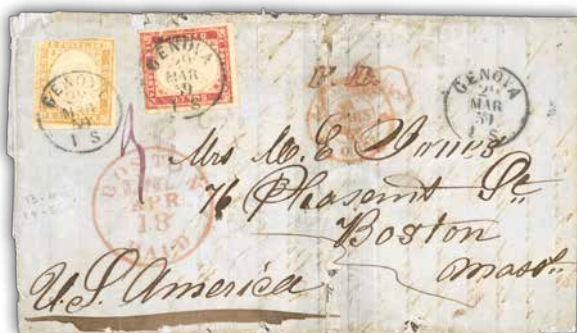 GENOVA
29
MAR
59
1 S
GENOVA
29
MAR
59
1 S
P. D.
GENOVA
29
MAR
59
1 S
BOSTON
APR
18
PAID
Mrs M. E. Jones
76 Pleasant St.
Boston
Mass.
U.S. America